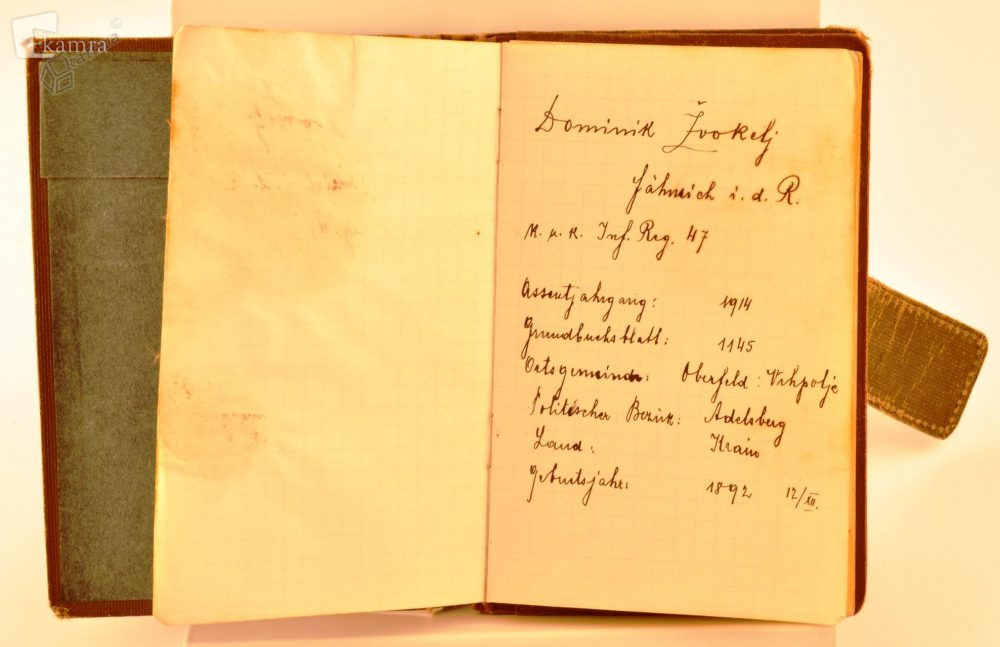 kamra
Dominik Žvokelj
Fähnrich i. d. R.
k. u. k. Inf. Reg. 47
Assentjahrgang: 1914
Grundbuchsblatt: 1145
Ortsgemeinde: Oberfeld: Vrhpolje
Politischer Bezirk: Adelsberg
Land: Krain
Geburtsjahr: 1892 12/XII.